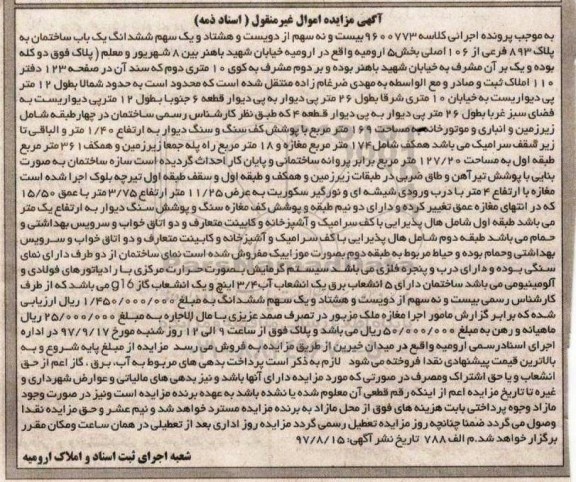 آگهی مزایده اموال غیرمنقول ( اسناد ذمه)
به موجب پرونده اجرائی کلاسه ۹۶۰۰۷۷۳ بیست و نه سهم از دویست و هشتاد و یک سهم ششدانگ یک باب ساختمان به
پلاک ۸۹۳ فرعی از ۱۰۶ اصلی بخش۵ ارومیه واقع در ارومیه خیابان شهید باهنر بین ۸ شهریور و معلم ( پلاک فوق دو کله
بوده و یک بر آن مشرف به خیابان شهید باهنر بوده و بر دوم مشرف به کوی ۱۰ متری دوم که سند آن در صفحه ۱۲۳ دفتر
۱۱۰ املاک ثبت و صادر و مع الواسطه به مهدی ضرغام زاده منتقل شده است که محدود است به حدود شمالا بطول ۱۲ متر
پی دیواریست به خیابان ۱۰ متری شرقا بطول ۲۶ متر پی دیوار به پی دیوار قطعه ۶ جنوبا بطول ۱۲ متر پی دیواریست به
فضای سبز غربا بطول ۲۶ متر پی دیوار به پی دیوار قطعه ۴ که طبق نظر کارشناس رسمی ساختمان در چهارطبقه شامل
زیرزمین و انباری و موتورخانه به مساحت ۱۶۹ متر مربع با پوشش کف سنگ و سنگ دیوار به ارتفاع ۱/۴۰ متر و الباقی تا
زیر سقف سرامیک می باشد همکف شامل ۱۷۴ متر مربع مغازه و ۱۸ متر مربع راه پله جمعا زیرزمین و همکف ۳۶۱ متر مربع
طبقه اول به مساحت ۱۲۷/۲۰ متر مربع برابر پروانه ساختمانی و پایان کار احداث گردیده است سازه ساختمان به صورت
بنایی با پوشش تیرآهن و طاق ضربی در طبقات زیرزمین و همکف و طبقه اول و سقف طبقه اول تیرچه بلوک اجرا شده است
مغازه با ارتفاع ۴ متر با درب ورودی شیشه ای و نورگیر سکوریت به عرض ۱۱/۲۵ متر ارتفاع ۳/۷۵ متر با عمق ۱۵/۵۰
که در انتهای مغازه عمق تغییر کرده و دارای دو نیم طبقه و پوشش کف مغازه سنگ و پوشش سنگ دیوار به ارتفاع یک متر
می باشد طبقه اول شامل هال پذیرایی با کف سرامیک و آشپزخانه و کابینت متعارف و دو اتاق خواب و سرویس بهداشتی و
حمام می باشد طبقه دوم شامل هال پذیرایی با کف سرامیک و آشپزخانه و کابینت متعارف و دو اتاق خواب و سرویس
بهداشتی وحمام بوده و حیاط مربوط به طبقه دوم بصورت موزاییک مفروش شده است نمای ساختمان از دو طرف دارای نمای
سنگی بوده و دارای درب و پنجره فلزی می باشد سیستم گرمایش بصورت حرارت مرکزی با رادیاتورهای فولادی و
آلومینیومی می باشد ساختمان دارای ۵ انشعاب برق یک انشعاب آب ۳/۴ اینچ و یک انشعاب گاز g16 می باشد که از طرف
کارشناس رسمی بیست و نه سهم از دویست و هشتاد و یک سهم ششدانگ به مبلغ ۱/۴۵۰/۰۰۰/۰۰۰ ریال ارزیابی
شده که برابر گزارش مامور اجرا مغازه ملک مزبور در تصرف صمد عزیزی با مال الاجاره به مبلغ ۲۵/۰۰۰/۰۰۰ ریال
ماهیانه و رهن به مبلغ ۵۰/۰۰۰/۰۰۰ ریال می باشد و پلاک فوق از ساعت ۹ الی ۱۲ روز شنبه مورخ ۹۷/۹/۱۷ در اداره
اجرای اسنادرسمی ارومیه واقع در میدان خیرین از طریق مزایده به فروش می رسد مزایده از مبلغ پایه شروع و به
بالاترین قیمت پیشنهادی نقدا فروخته می شود لازم به ذکر است پرداخت بدهی های مربوط به آب، برق، گاز اعم از حق
انشعاب و یا حق اشتراک ومصرف در صورتی که مورد مزایده دارای آنها باشد و نیز بدهی های مالیاتی و عوارض شهرداری و
غیره تا تاریخ مزایده اعم از اینکه رقم قطعی آن معلوم شده یا نشده باشد به عهده برنده مزایده است ونیز در صورت وجود
مازاد وجوه پرداختی بابت هزینه های فوق از محل مازاد به برنده مزایده مسترد خواهد شد و نیم عشر و حق مزایده نقدا
وصول می گردد ضمنا چنانچه روز مزایده تعطیل رسمی گردد مزایده روز اداری بعد از تعطیلی در همان ساعت ومکان مقرر
برگزار خواهد شد.م الف ۷۸۸ تاریخ نشر آگهی: ۹۷/۸/۱۵
شعبه اجرای ثبت اسناد و املاک ارومیه